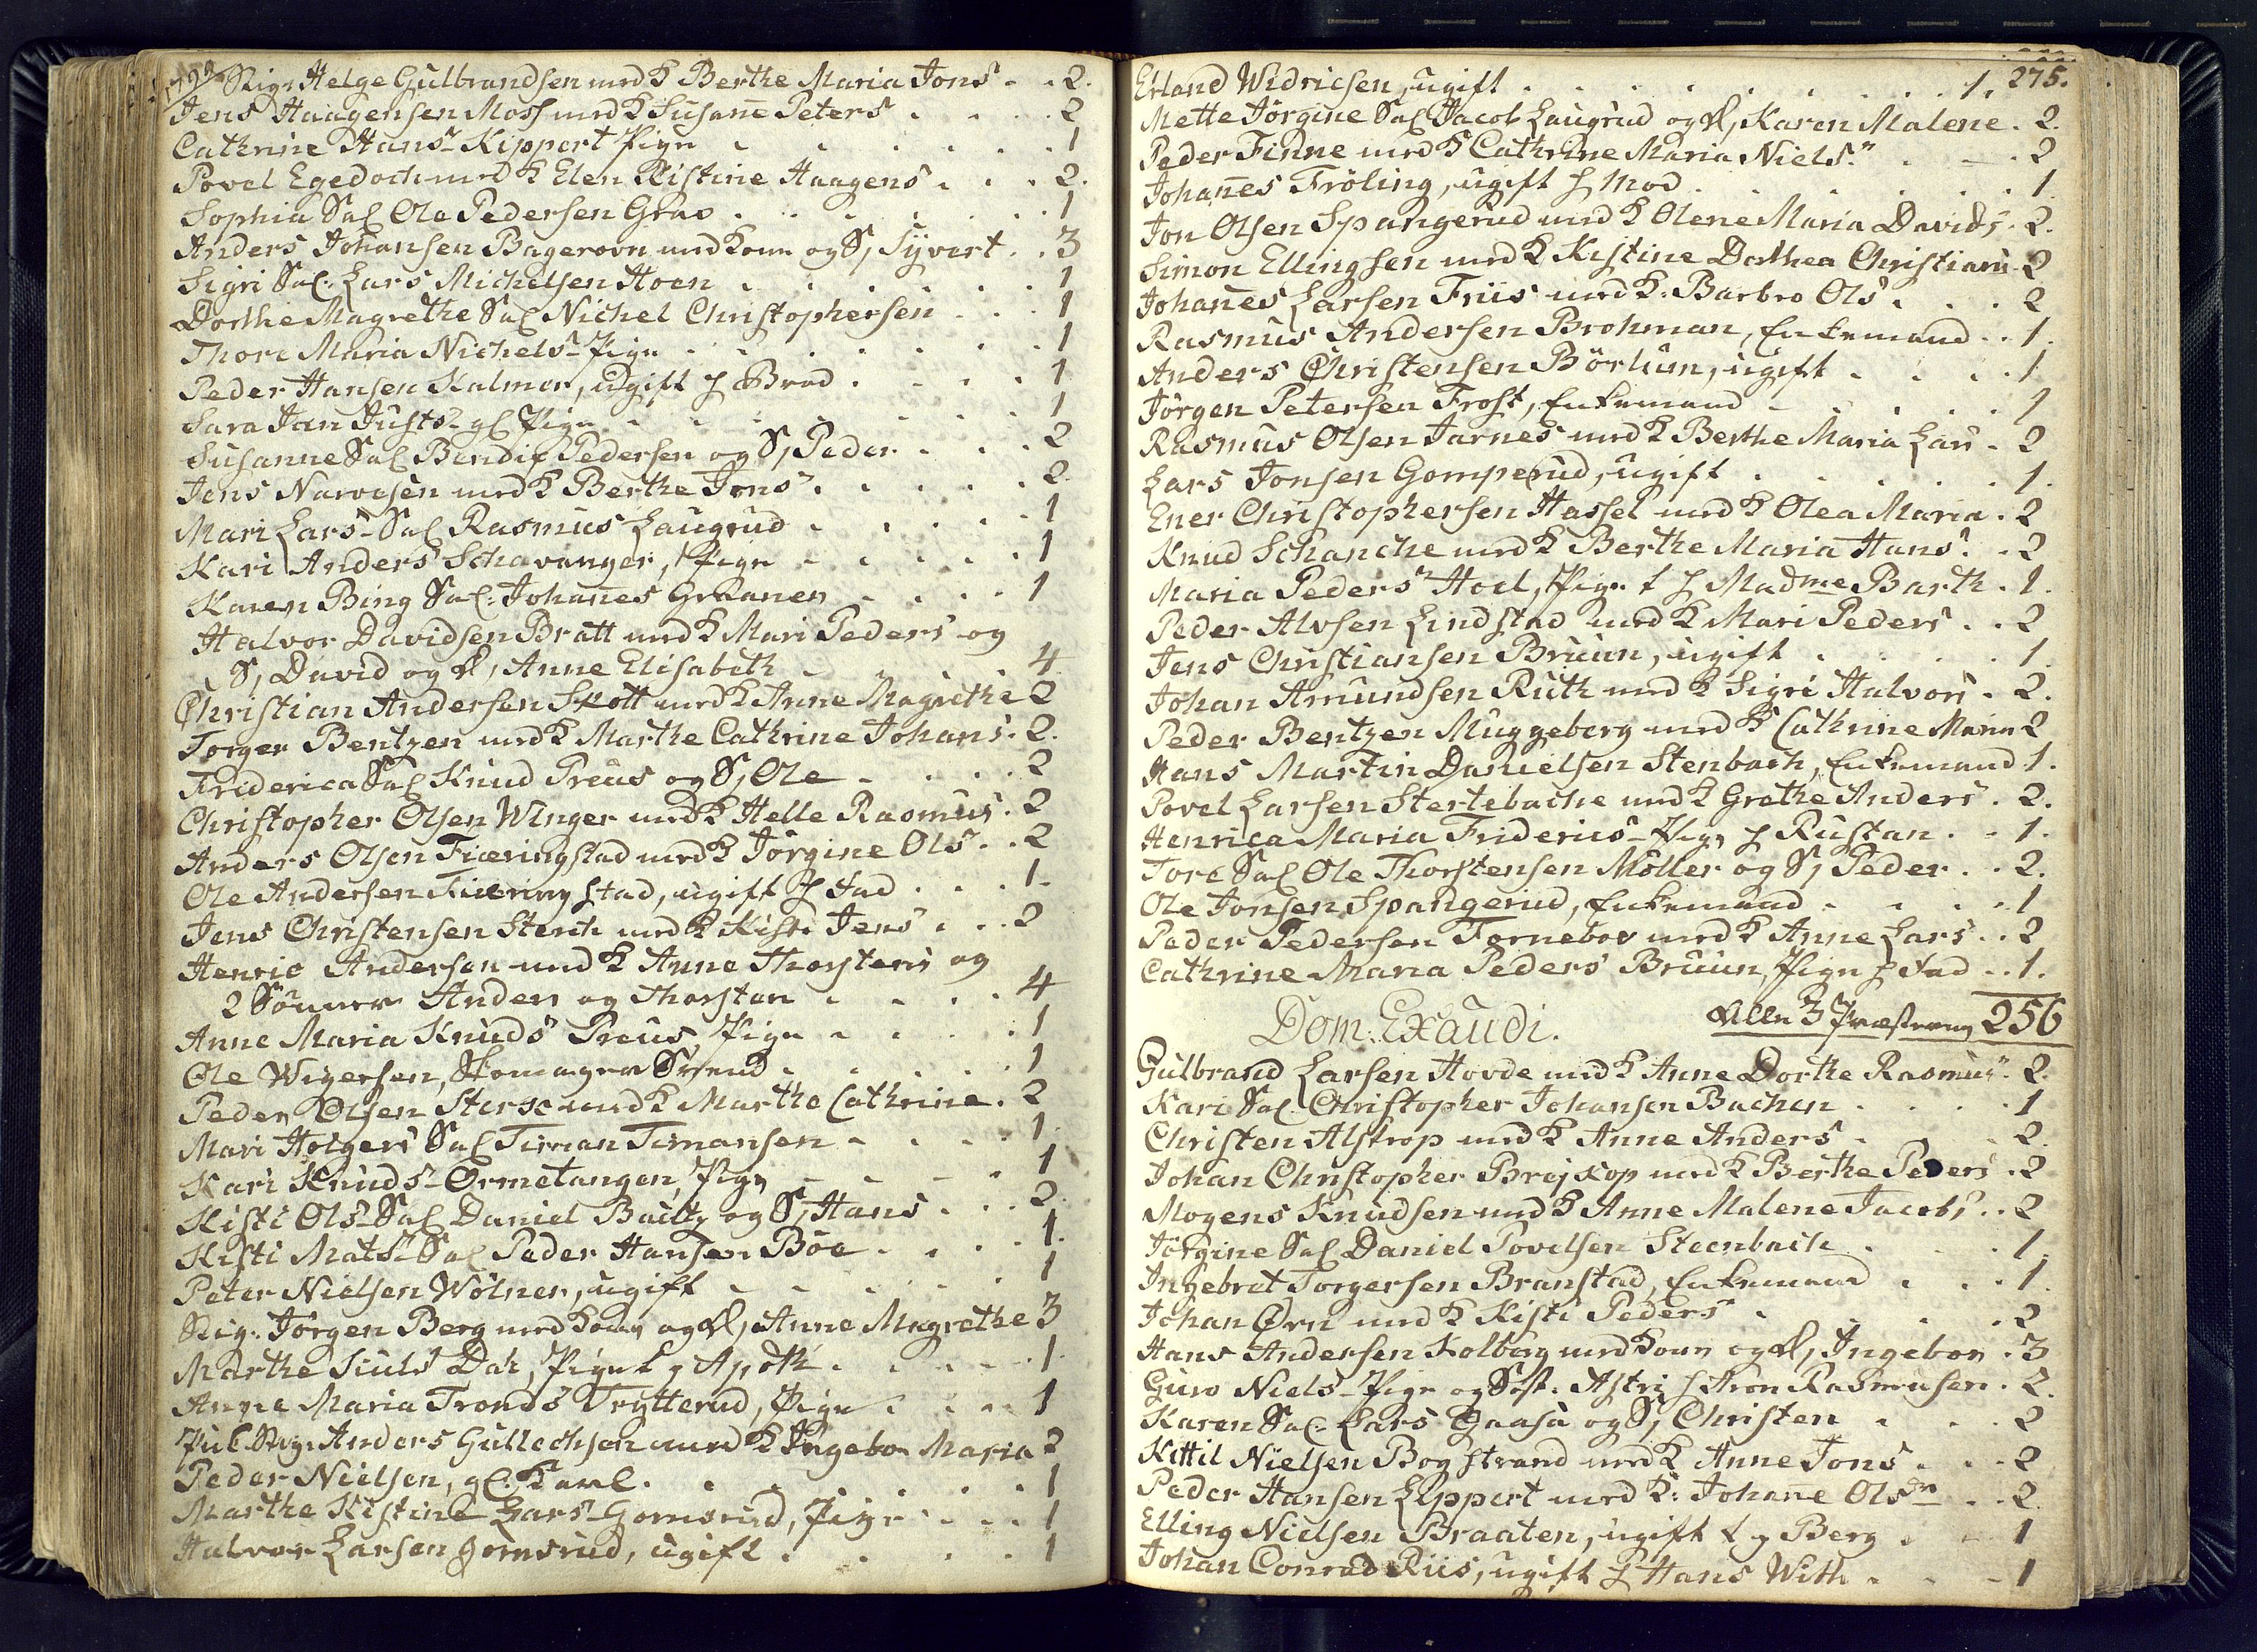 Sigr Helge Gulbrandsen med K Berthe Maria Jons . . 2.
Jens Haagensen Moss med K Susanne Peters . . . 2
Cathrine Hans- Kippert Pige . . . . . 1
Povel Egedoch med K Elen Kistine Haagens . . . 2.
Sophia Sal Ole Pedersen Grav . . . . . 1
Anders Johansen Bagerovn med Kone og S, Syvert . . 3
Sigri Sal: Lars Michelsen Hoen . . . . . 1
Dorthe Magrethe Sal Nichel Christophersen . . . 1
Thore Maria Nichels- Pige . . . . . 1
Peder Hansen Kalmer, ugift h Brod . . . . 1
Sara Jan Justs- gl Pige . . . . . 1
Susanne Sal Bendix Pedersen og S, Peder . . . 2
Jens Narvesen med K Berthe Jens . . . . . 2.
Mari Lars- Sal Rasmus Laugrud . . . . 1
Kari Anders Schavanger, Pige . . . . . 1
Karen Bing Sal: Johanes Graanen . . . . 1
Halvor Davidsen Bratt med K Mari Peders og
S, David og D, Anne Elisabeth . . . . 4
Christian Andersen Skott med K Anne Magrethe 2
Torger Bentzen med K Marthe Cathrine Johans . 2.
Friderica Sal Knud Preus og S, Ole . . . . 2
Christopher Olsen Winger med K Helle Rasmus . 2
Anders Olsen Fiæringstad med K Jörgine Ols . . 2
Ole Andersen Fiæringstad, ugift h Fad . . . 1.
Jens Christensen Sterch med K Kisti Jens . . . 2
Henric Andersen med K Anne Thorstens og
2 Sönner Anders og Thorsten . . . . 4
Anne Maria Knuds Preus, Pige . . . . 1
Ole Wigersen, Skomager Svend . . . . 1
Peder Olsen Sterse med K Marthe Cathrine . 2
Mari Holgers Sal Timan Timansen . . . . 1
Kari Knuds- Ormetangen, Pige . . . . 1
Kisti Ols- Sal Daniel Bailtz og S, Hans . . . 2.
Kisti Mats- Sal Peder Hansen Böe . . . . 1.
Peter Nielsen Wölner, ugift . . . . . 1
Sigr. Jörgen Berg med Kone og D, Anne Magrethe 3
Marthe Siuls Dahl, Pige t g Apoth . . . . 1
Anne Maria Tronds Trytterud, Pige . . . . 1
Anders Gullechsen med K Ingebor Maria 2
Peder Nielsen, gl. Karl . . . . . 1
Marthe Kistine Lars- Gomsrud, Pige . . . 1
Halvor Larsen Gomsrud, ugift . . . . 1
275.
Erland Widricsen, ugift . . . . . . 1.
Mette Jörgine Sal Jacob Laugrud og D, Karen Malene . 2.
Peder Finne med K Cathrine Maria Niels . . . 2
Johanes Fröling, ugift h Mod . . . . . 1.
Jon Olsen Spangerud med K Olene Maria Davids . 2.
Simon Ellingsen med K Kistine Dorthea Christians . 2
Johanes Larsen Friis med K: Barbro Ols . . . 2
Rasmus Andersen Brohman, Enkemand . . 1.
Anders Christensen Börlum, ugift . . . . 1
Jörgen Petersen Frost, Enkemand . . . . . 1
Rasmus Olsen Jarnes med K Berthe Maria Lars . 2
Lars Jonsen Gomperud, ugift . . . . . 1.
Ener Christophersen Hassel med K Olea Maria . 2
Knud Schanche med K Berthe Maria Hans . . 2
Maria Peders Hoel, Pige t h Madme Barth . 1.
Peder Alvsen Lindstad med K Mari Peders . . 2
Jens Christiansen Bruun, ugift . . . . 1.
Johan Amundsen Ruth med K Sigri Halvors . 2.
Peder Bentzen Muggeberg med K Cathrine Maria 2
Hans Martin Danielsen Stenbach, Enkemand 1.
Povel Larsen Stertebache med K Grethe Anders . 2.
Henrica Maria Frideries- Pige h Rustan . . 1.
Tore Sal Ole Thorstensen Möller og S, Peder . . 2.
Ole Jonsen Spangerud, Enkemand . . . . 1
Peder Pedersen Forneboe med K Anne Lars . . 2
Cathrine Maria Peders Bruun, Pige h Fad . . 1.
256
Dom. Exaudi.
Gulbrand Larsen Hovde med K Anne Dorthe Rasmus . 2.
Kari Sal. Christopher Johansen Bachen . . . . 1
Christen Alstrop med K Anne Anders . . . 2.
Johan Christopher Brejkop med K Berthe Peders . 2
Mogens Knudsen med K Anne Malene Jacobs . . 2
Jörgine Sal Daniel Povelsen Steenbach . . . 1.
Ingebret Torgersen Branstad, Enkemand . . . 1.
Johan Örn med K Kisti Peders . . . . 2
Hans Andersen Kolberg med Kone og D, Ingebor . 3
Guro Niels- Pige og Søst. Astri h Aron Rasmusen . 2.
Karen Sal. Lars Gaasa og S, Christen . . . 2
Kittil Nielsen Bogstrand med K Anne Jons . . . 2
Peder Hansen Leppert med K: Johane Ols . . 2.
Elling Nielsen Braaten, ugift t g Berg . . . 1
Johan Conrad Riis, ugift h Hans With . . . 1